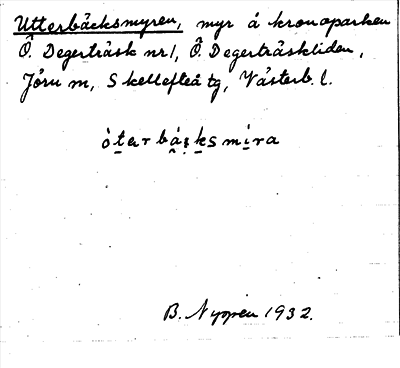 Utterbäcksmyren, myr å kronoparken
Ö. Degerträsk nr 1, Ö. Degerträskliden,
Jörn sn, Skellefteå tg, Västerb. l.
B. Nyopén 1932.